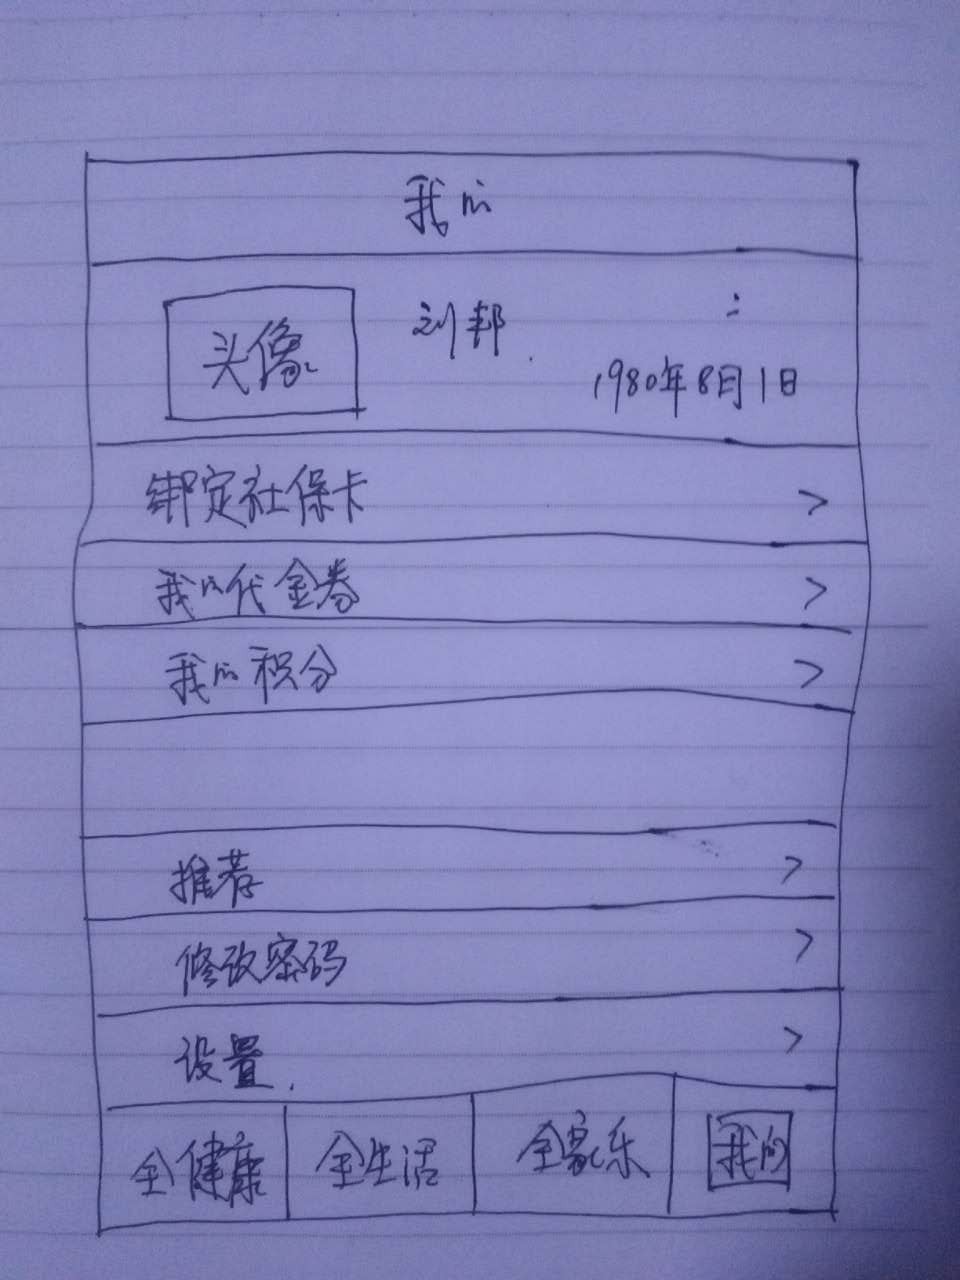 我的
头像 刘邦
1980年8月1日
绑定社保卡 >
我的代金券 >
我的积分 >
推荐 >
修改密码 >
设置. >
全健康 全生活 全家乐 我的